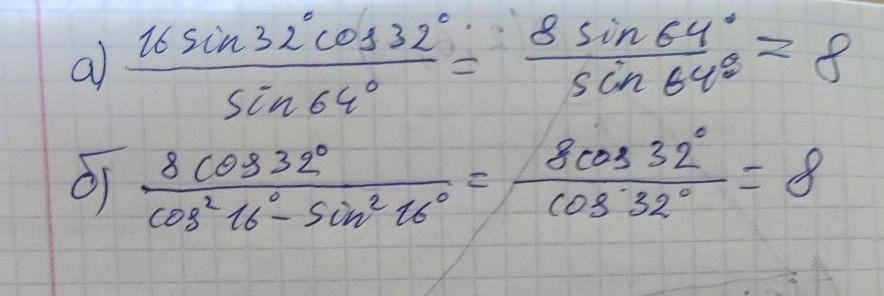 а) 16 sin 32° cos 32° / sin 64° = 8 sin 64° / sin 64° = 8
б) 8 cos 32° / cos² 16° - sin² 16° = 8 cos 32° / cos 32° = 8